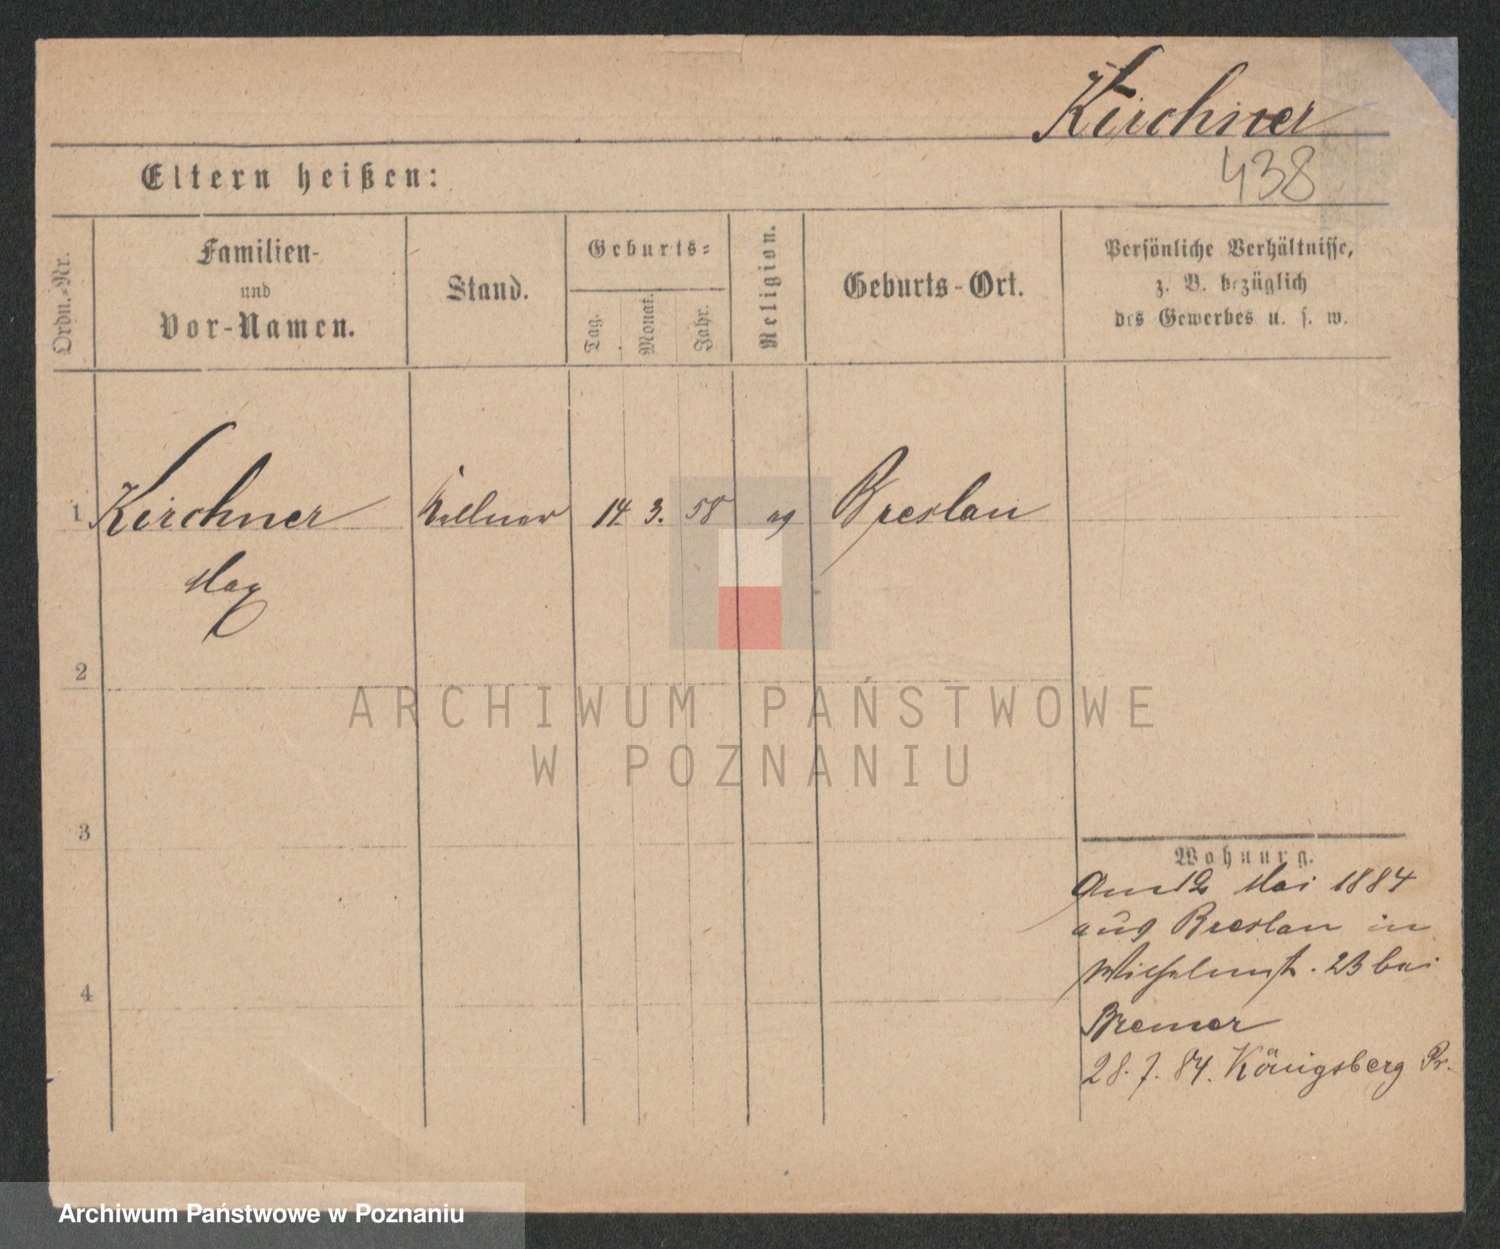 Kirchner
438
Eltern heißen:
Ordn.-Nr.
Familien-
und
Vor-Namen.
Stand.
Geburts-
Tag.
Monat.
Jahr.
Religion.
Geburts-Ort.
Persönliche Verhältnisse,
z. B. bezüglich
des Gewerbes u. s. w.
1 Kirchner Kellner 14. 3. 58 Breslau
Max
2
ARCHIWUM PAŃSTWOWE
W POZNANIU
3
Wohnung.
Am 12 Mai 1884
aus Breslau in
Wilhelmst. 23 bei
Bremer
4
28. 7. 84. Königsberg Pr.
Archiwum Państwowe w Poznaniu